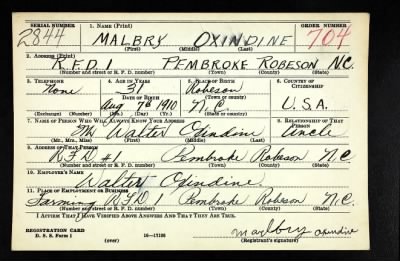 SERIAL NUMBER 1. NAME (Print) ORDER NUMBER
2844 MALBRY OXINDINE 704
(First) (Middle) (Last)
2. ADDRESS (Print)
R.F.D 1 PEMBROKE ROBESON N.C.
(Number and street or R. F. D. number) (Town) (County) (State)
3. TELEPHONE 4. AGE IN YEARS 5. PLACE OF BIRTH 6. COUNTRY OF CITIZENSHIP
None 31 Robeson
DATE OF BIRTH (Town or county)
Aug 7th 1910 N.C. U.S.A.
(Exchange) (Number) (Mo.) (Day) (Yr.) (State or country)
7. NAME OF PERSON WHO WILL ALWAYS KNOW YOUR ADDRESS 8. RELATIONSHIP OF THAT PERSON
Mr Walter Oxindine Uncle
(Mr., Mrs., Miss) (First) (Middle) (Last)
9. ADDRESS OF THAT PERSON
RFD #1 Pembroke Robeson N.C.
(Number and street or R. F. D. number) (Town) (County) (State)
10. EMPLOYER'S NAME
Walter Oxindine.
11. PLACE OF EMPLOYMENT OR BUSINESS
Farming RFD 1 Pembroke Robeson N.C.
(Number and street or R. F. D. number) (Town) (County) (State)
I AFFIRM THAT I HAVE VERIFIED ABOVE ANSWERS AND THAT THEY ARE TRUE.
REGISTRATION CARD
D. S. S. Form 1 (over) 16—17105 Malbry Oxindine
(Registrant's signature)